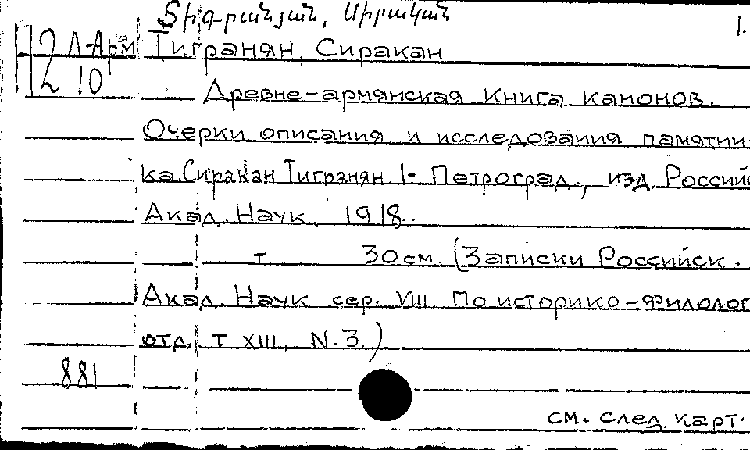 Տիգրանյան, Սիրական 1.
Н2 Л-Арм Тигранян, Сиракан
10 Древне-армянская книга канонов.
Очерки описания и исследования памятни-
ка Сиракан Тигранян I- Петроград., изд. Россий
Акад. Наук, 1918.
т 30 см. (Записки Российск.
Акад. Наук сер. VIII. По историко-филолог
отд. Т XIII, N.3.)
881
см. след. карт.